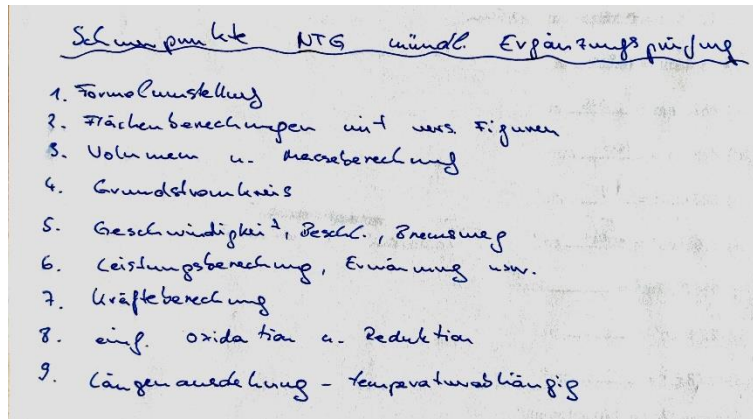 Schwerpunkte NTG mündl. Ergänzungsprüfung
1. Formelumstellung
2. Flächenberechnungen mit vers. Figuren
3. Volumen u. Masseberechnung
4. Grundstromkreis
5. Geschwindigkeit, Beschl., Bremsweg
6. Leistungsberechnung, Erwärmung usw.
7. Kräfteberechnung
8. einf. Oxidation u. Reduktion
9. Längenausdehnung - temperaturabhängig